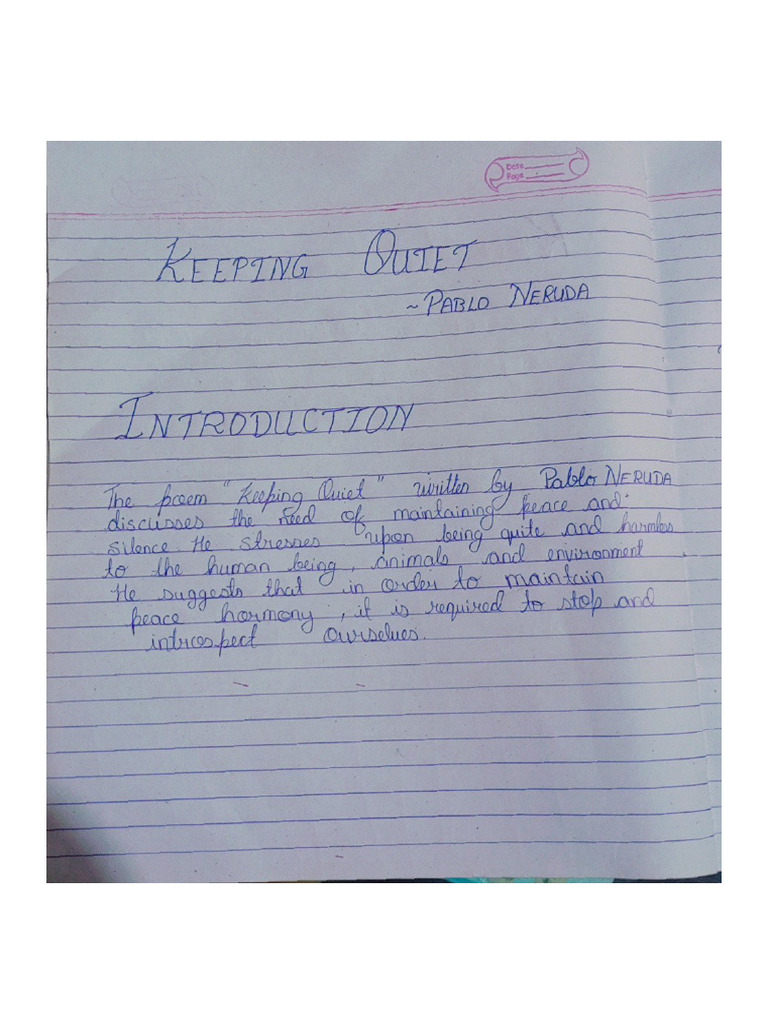 Date
Page
KEEPING QUIET
~ PABLO NERUDA
INTRODUCTION
The poem "Keeping Quiet" written by Pablo NERUDA
discusses the need of maintaining peace and
silence. He stresses upon being quite and harmless
to the human being, animals and environment
He suggests that in order to maintain
peace hormony, it is required to stop and
introspect ourselves.